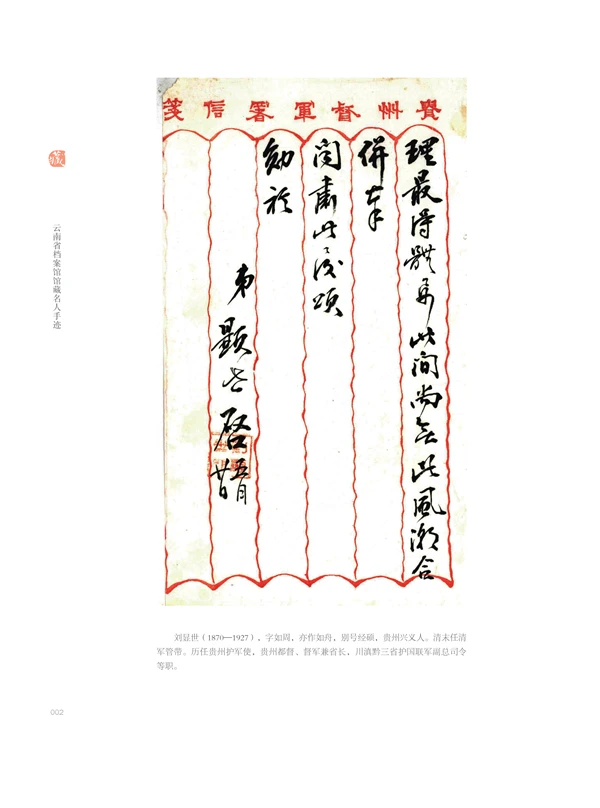 貴州督軍署信箋
理最得體此間尚無此風潮合
併奉
聞肅此復頌
勛祉
弟顯世啓
五月廿日
藏
云南省档案馆馆藏名人手迹
刘显世（1870—1927），字如周，亦作如舟，别号经硕，贵州兴义人。清末任清
军管带。历任贵州护军使，贵州都督、督军兼省长，川滇黔三省护国联军副总司令
等职。
002